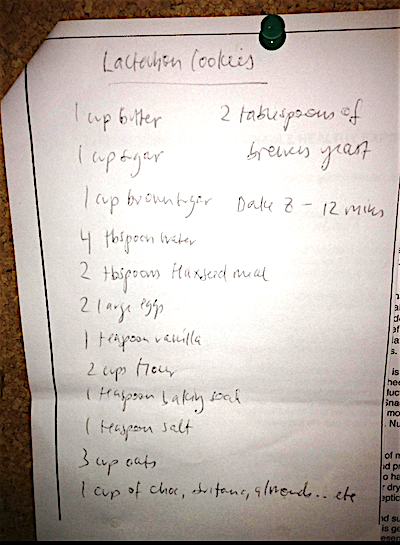 Lactation Cookies
1 cup butter
1 cup sugar
1 cup brown sugar
4 tbspoon water
2 tbspoons flaxseed meal
2 large eggs
1 teaspoon vanilla
2 cups flour
1 teaspoon baking soda
1 teaspoon salt
3 cup oats
1 cup of choc, sultana, almonds.. etc
2 tablespoons of
brewers yeast
Bake 8 - 12 mins